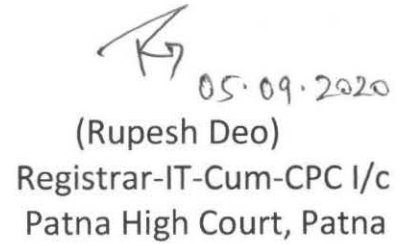 05.09.2020
(Rupesh Deo)
Registrar-IT-Cum-CPC I/c
Patna High Court, Patna